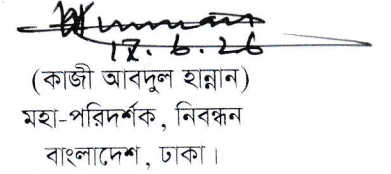 17.6.26
(কাজী আবদুল হান্নান)
মহা-পরিদর্শক, নিবন্ধন
বাংলাদেশ, ঢাকা।